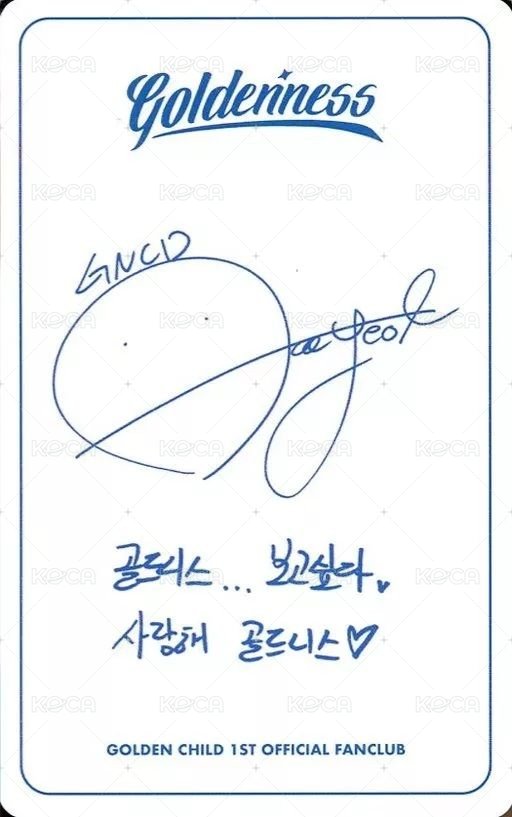 Goldenness
GNCD
JaeYeol
골드니스... 보고싶다♥
사랑해 골드니스♡
GOLDEN CHILD 1ST OFFICIAL FANCLUB
KOCA